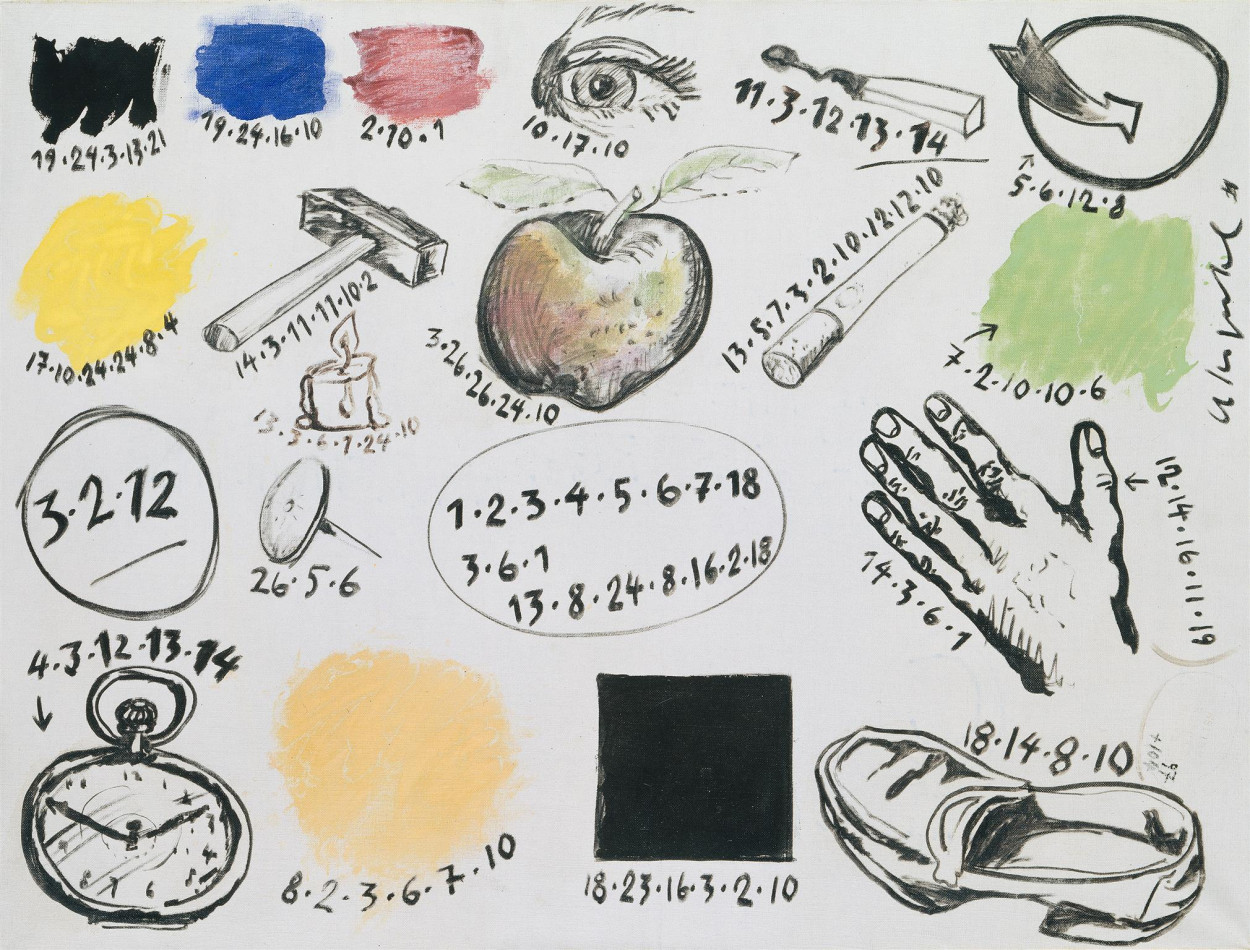 19·24·3·13·21
19·24·16·10
2·10·1
10·17·10
11·3·12·13·14
5·6·12·8
17·10·24·24·8·4
14·3·11·11·10·2
3·26·26·24·10
13·5·7·3·2·10·12·12·10
7·2·10·10·6
13·3·6·1·24·10
3·2·12
26·5·6
1·2·3·4·5·6·7·18
3·6·1
13·8·24·8·16·2·18
14·3·6·1
12·14·16·11·19
4·3·12·13·14
12
6
8·2·3·6·7·10
18·23·16·3·2·10
18·14·8·10